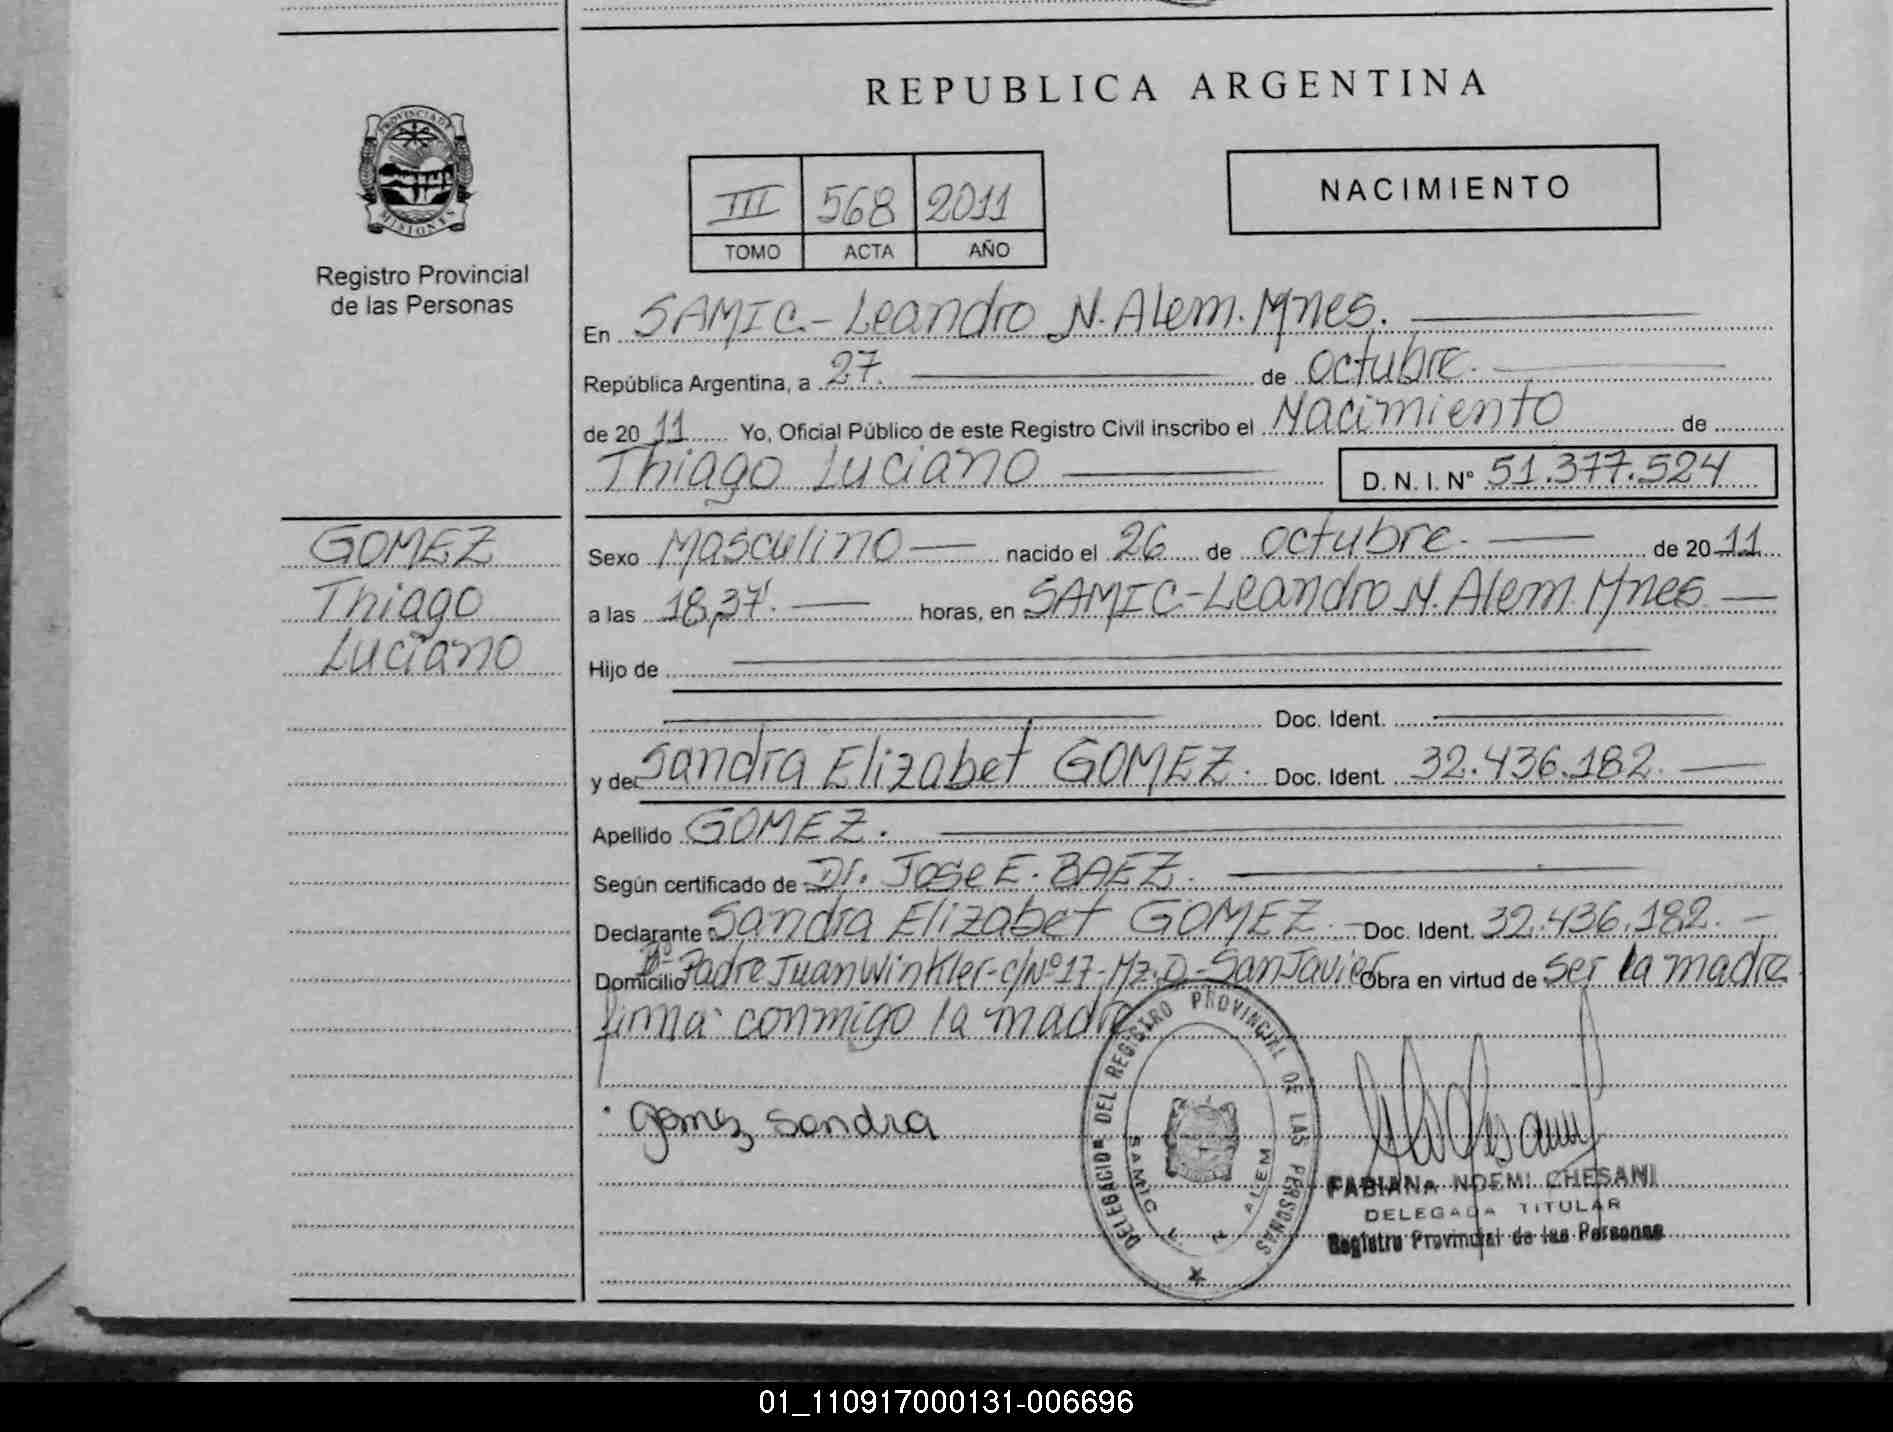 REPUBLICA ARGENTINA
PROVINCIA DE
MISIONES
Registro Provincial
de las Personas
III 568 2011
TOMO ACTA AÑO
NACIMIENTO
En SAMIC.- Leandro N. Alem. Mnes.
República Argentina, a 27. de octubre.
de 2011 Yo, Oficial Público de este Registro Civil inscribo el Nacimiento de
Thiago Luciano D. N. I. N° 51.377.524
GOMEZ
Thiago
Luciano
Sexo Masculino nacido el 26 de octubre. de 2011
a las 18,37'. horas, en SAMIC-Leandro N. Alem. Mnes
Hijo de
Doc. Ident.
y de Sandra Elizabet GOMEZ. Doc. Ident. 32.436.182.
Apellido GOMEZ.
Según certificado de Dr. Jose E. BAEZ.
Declarante Sandra Elizabet GOMEZ. Doc. Ident. 32.436.182.
Domicilio Padre Juan Winkler-c/Nº17-Mz.D-San Javier Obra en virtud de ser la madre
firma conmigo la madre
Gomez Sandra
DELEGACION DEL REGISTRO PROVINCIAL DE LAS PERSONAS
SAMIC L. N. ALEM
FABIANA NOEMI CHESANI
DELEGADA TITULAR
Registro Provincial de las Personas
01_110917000131-006696